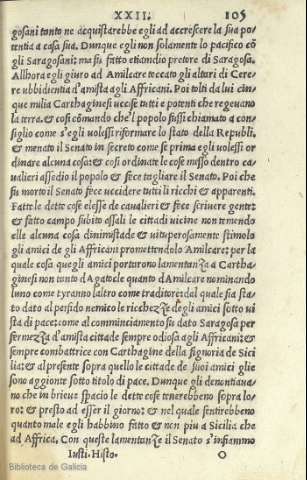 XXII. 105
gosani tanto ne acquistarebbe egli ad accrescere la sua po
tentia a casa sua. Dunque egli non solamente lo pacifico cõ
gli Saragosani: ma fu fatto etiandio pretore di Saragosa.
Allhora egli giuro ad Amilcare toccato gli altari di Cere
re ubbidientia d'amista agli Affricani. Poi tolti da lui cin
que milia Carthaginesi uccise tutti e potenti che regeuano
la terra. & cosi cõmando che'l popolo fussi chiamato a con
siglio come s'egli uolessi riformare lo stato della Republi.
& menato il Senato in secreto come se prima egli uolessi or
dinare alcuna cosa: & cosi ordinate le cose messo dentro ca-
ualieri assedio il popolo & fece tagliare il Senato. Poi che
fu morto il Senato fece uccidere tutti li ricchi & apparenti.
Fatte le dette cose elesse de caualieri & fece scriuere gente:
& fatto campo subito assali le cittadi uicine non temendo
elle alcuna cosa dinimistade & uituperosamente stimolo
gli amici de gli Affricani promettendolo Amilcare: per la
quale cosa quegli amici portorono lamentanze a Cartha-
ginesi non tanto d'Agatocle quanto d'Amilcare nominando
luno come tyranno laltro come traditore: dal quale sia sta-
to dato al pessimo nemico le ricchezze degli amici sotto ui
sta di pace: come al comminciamento fu dato Saragosa per
fermezza d'amista cittade sempre odiosa agli Affricani: &
sempre combattrice con Carthagine della signoria de Sici
lia: & al presente sopra quello le cittade de suoi amici glie
sono aggionte sotto titolo de pace. Dunque gli denontiaua-
no che in brieue spacio le dette cose tenerebbeno sopra lo-
ro: & presto ad esser il giorno: & nel quale sentirebbeno
quanto male egli habbino fatto & non piu a Sicilia che
ad Affrica. Con queste lamentanze il Senato s'infiammo
Iusti. Histo. O
Biblioteca de Galicia